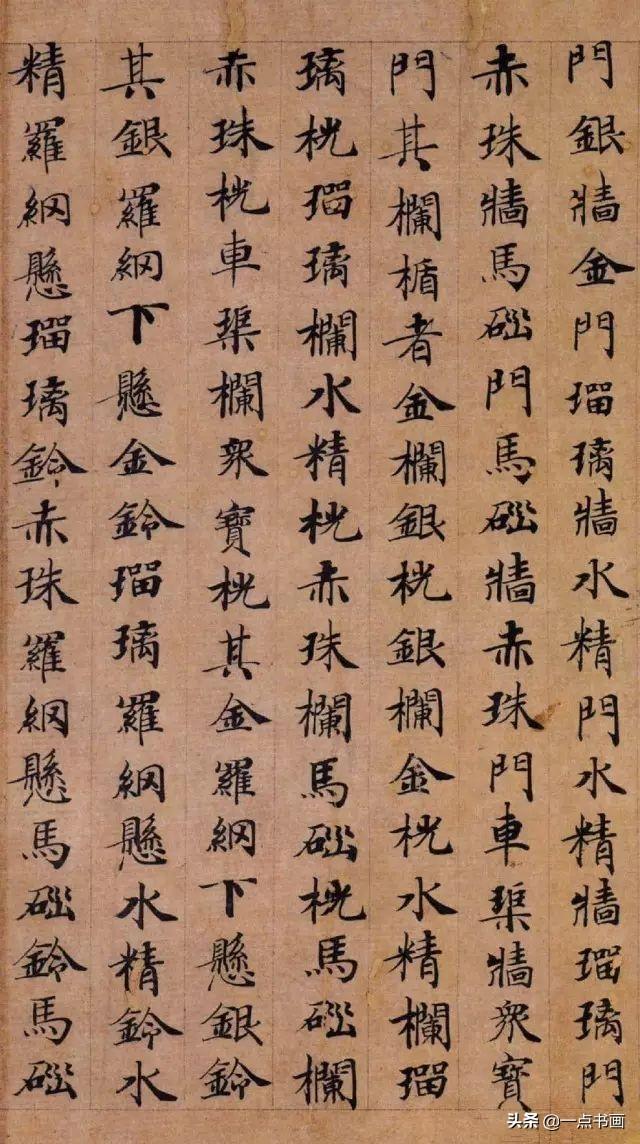 門銀牆金門瑠璃牆水精門水精牆瑠璃門
赤珠牆馬碯門馬碯牆赤珠門車渠牆眾寶
門其欄楯者金欄銀桄銀欄金桄水精欄瑠
璃桄瑠璃欄水精桄赤珠欄馬碯桄馬碯欄
赤珠桄車渠欄眾寶桄其金羅網下懸銀鈴
其銀羅網下懸金鈴瑠璃羅網懸水精鈴水
精羅網懸瑠璃鈴赤珠羅網懸馬碯鈴馬碯
头条 @一点书画